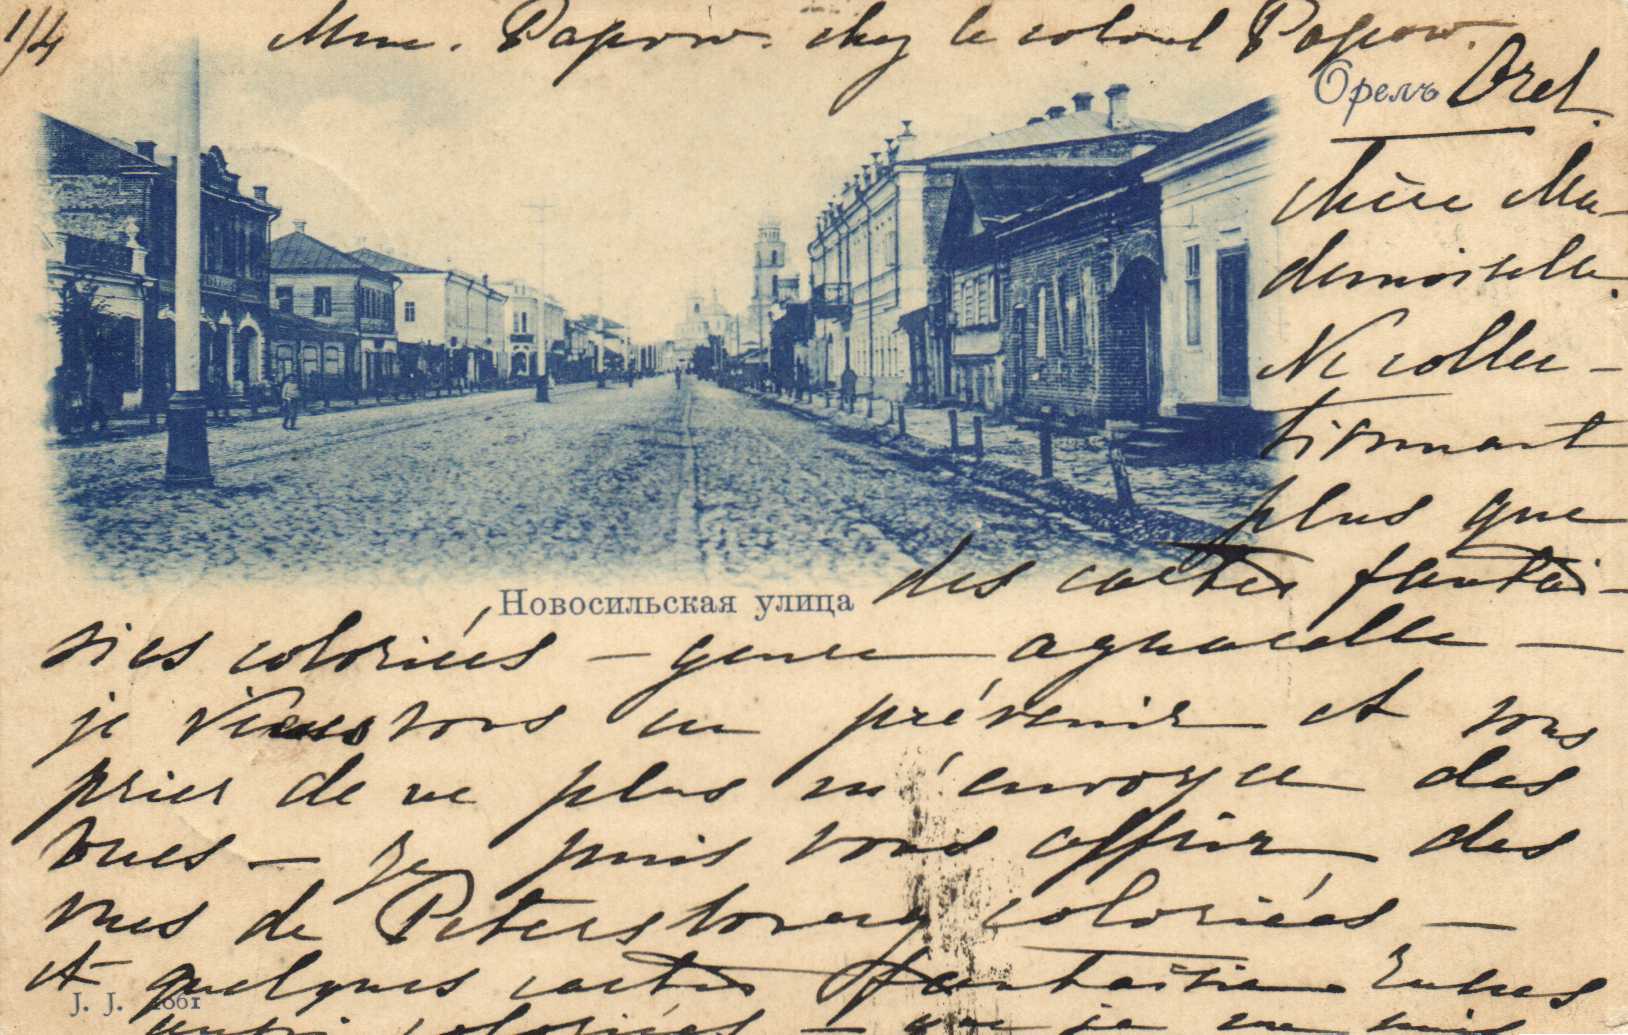 1/4
Mme. Papow. chez le colonel Papow.
Орелъ Orel.
Chère Ma-
demoiselle.
Ne collec-
tionnant
plus que
des cartes fantai-
Новосильская улица
sies coloriées – genre aquarelle –
je viens vous en prévenir et vous
prier de ne plus m'envoyer des
vues – Je puis vous offrir des
vues de Petersbourg coloriées –
et quelques cartes fantaisie russes
J. J. 1661
aussi coloriées – que je